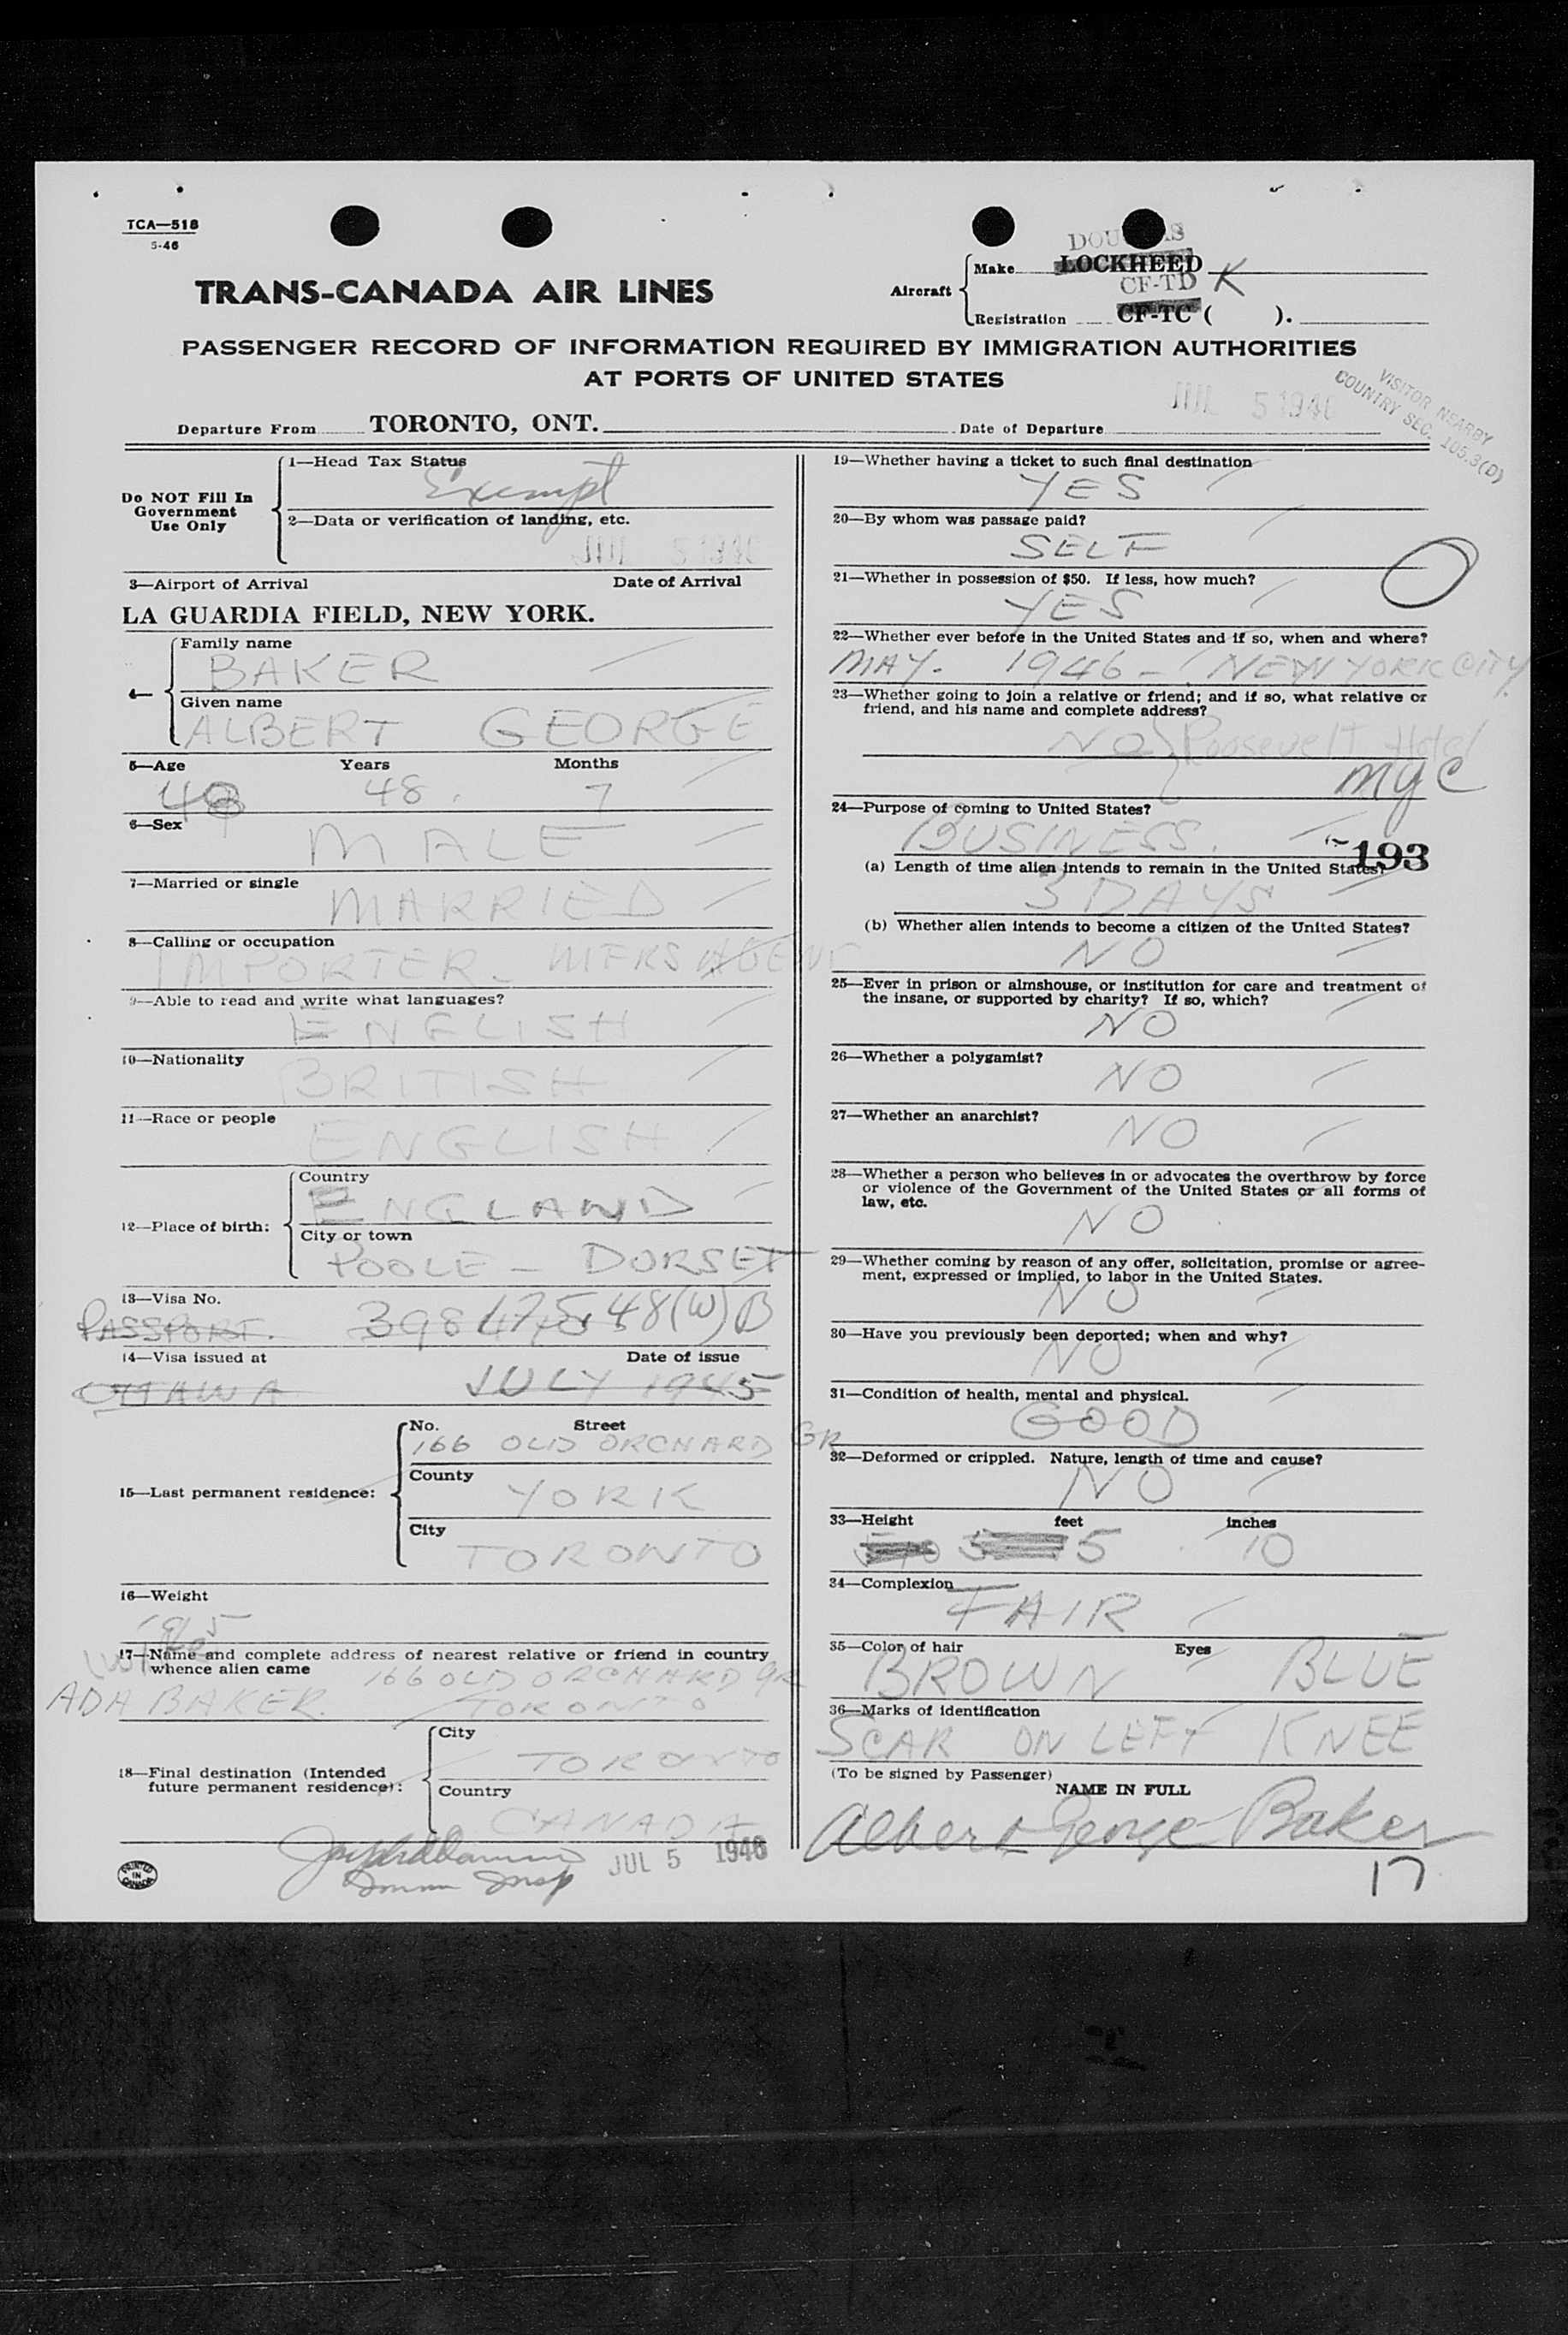 TCA—518
5-46
TRANS-CANADA AIR LINES
Aircraft
Make LOCKHEED
CF-TD K
Registration CF-TC ( ).
PASSENGER RECORD OF INFORMATION REQUIRED BY IMMIGRATION AUTHORITIES
AT PORTS OF UNITED STATES
JUL 5 1946
VISITOR NEARBY
COUNTRY SEC. 105.3(D)
Departure From TORONTO, ONT. Date of Departure
Do NOT Fill In
Government
Use Only
1—Head Tax Status
Exempt
2—Data or verification of landing, etc.
JUL 5 1946
3—Airport of Arrival Date of Arrival
LA GUARDIA FIELD, NEW YORK.
4—
Family name
BAKER
Given name
ALBERT GEORGE
5—Age Years Months
48 48 7
6—Sex
MALE
7—Married or single
MARRIED
8—Calling or occupation
IMPORTER - MFRS AGENT
9—Able to read and write what languages?
ENGLISH
10—Nationality
BRITISH
11—Race or people
ENGLISH
12—Place of birth:
Country
ENGLAND
City or town
POOLE - DORSET
13—Visa No.
PASSPORT.
48(W)B
14—Visa issued at Date of issue
OTTAWA JULY 1945
15—Last permanent residence:
No. Street
166 OLD ORCHARD GR
County
YORK
City
TORONTO
16—Weight
195
17—Name and complete address of nearest relative or friend in country
whence alien came 166 OLD ORCHARD GR
ADA BAKER. TORONTO
18—Final destination (Intended
future permanent residence):
City
TORONTO
Country
CANADA
Imm Insp
JUL 5 1946
PRINTED
IN
CANADA
19—Whether having a ticket to such final destination
YES
20—By whom was passage paid?
SELF
21—Whether in possession of $50. If less, how much?
YES
22—Whether ever before in the United States and if so, when and where?
MAY. 1946 - NEW YORK CITY
23—Whether going to join a relative or friend; and if so, what relative or
friend, and his name and complete address?
NO Roosevelt Hotel
NYC
24—Purpose of coming to United States?
BUSINESS.
193
(a) Length of time alien intends to remain in the United States?
3 DAYS
(b) Whether alien intends to become a citizen of the United States?
NO
25—Ever in prison or almshouse, or institution for care and treatment of
the insane, or supported by charity? If so, which?
NO
26—Whether a polygamist?
NO
27—Whether an anarchist?
NO
28—Whether a person who believes in or advocates the overthrow by force
or violence of the Government of the United States or all forms of
law, etc.
NO
29—Whether coming by reason of any offer, solicitation, promise or agree-
ment, expressed or implied, to labor in the United States.
NO
30—Have you previously been deported; when and why?
NO
31—Condition of health, mental and physical.
GOOD
32—Deformed or crippled. Nature, length of time and cause?
NO
33—Height feet inches
5 10
34—Complexion
FAIR
35—Color of hair Eyes
BROWN BLUE
36—Marks of identification
SCAR ON LEFT KNEE
(To be signed by Passenger)
NAME IN FULL
Albert George Baker
17